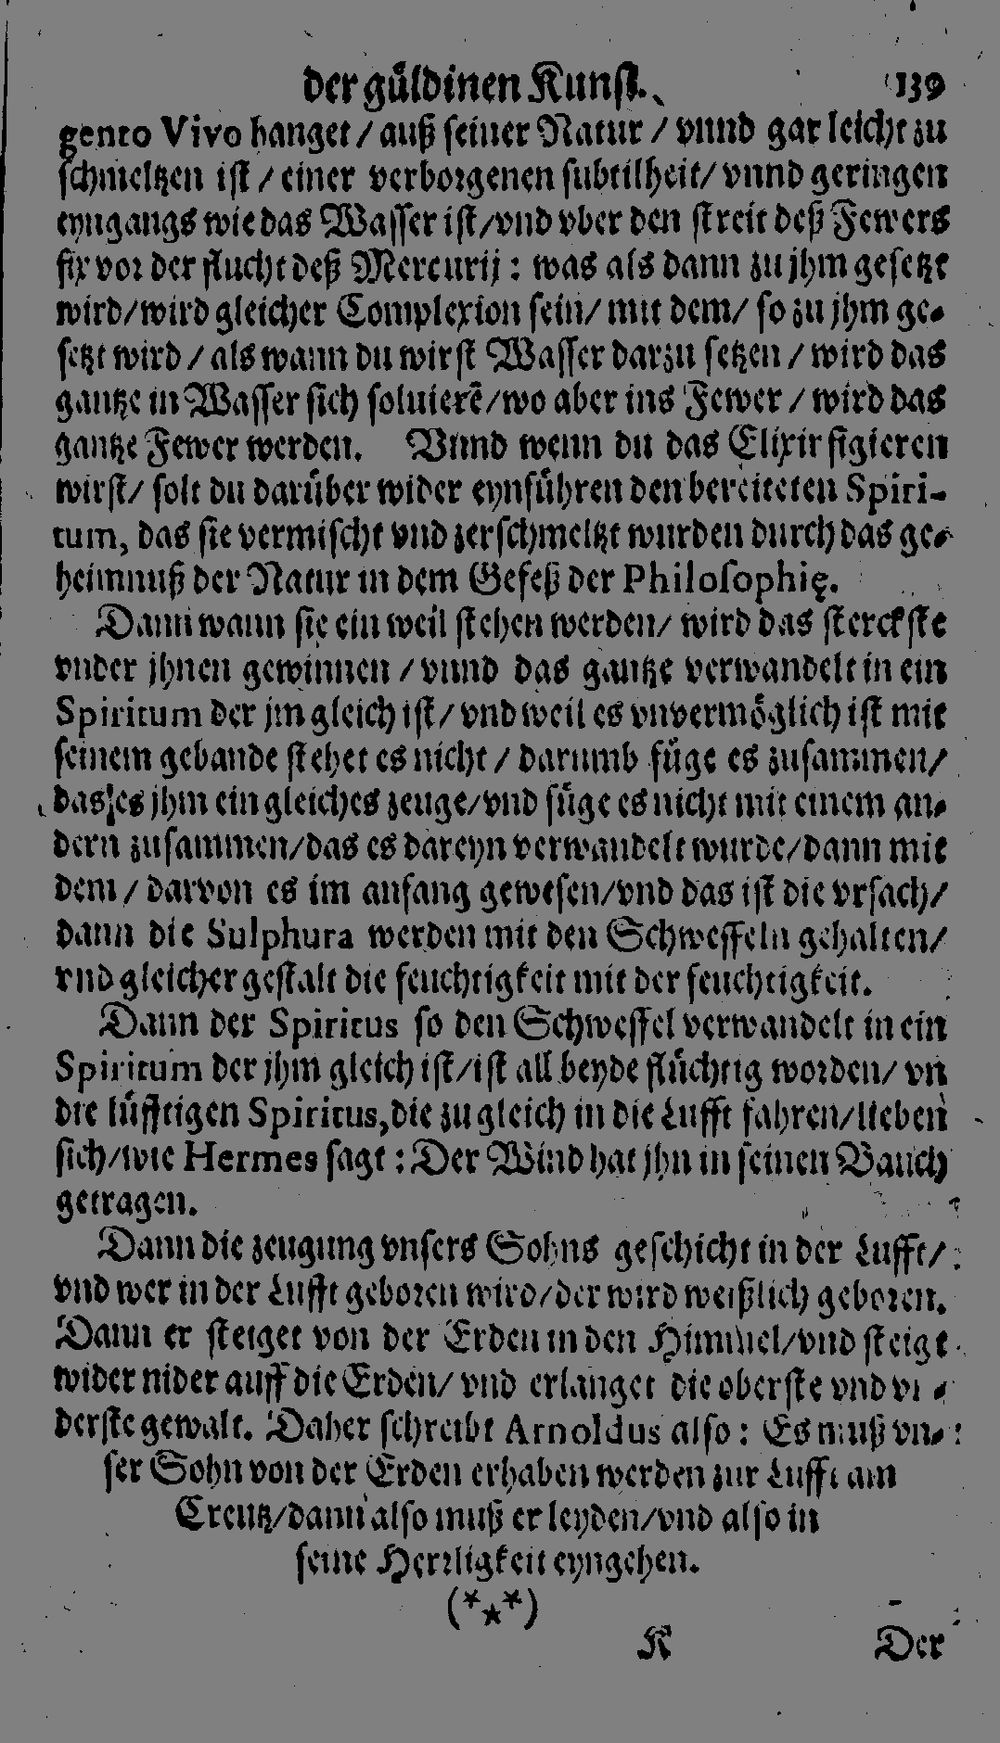 der güldinen Kunst. 139
gento Vivo hanget / auß seiner Natur / vnnd gar leicht zu
schmeltzen ist / einer verborgenen subtilheit / vnnd geringen
eyngangs wie das Wasser ist / vnd vber den streit deß Fewers
fix vor der flucht deß Mercurij : was als dann zu jhm gesetzt
wird / wird gleicher Complexion sein / mit dem / so zu jhm ge-
setzt wird / als wann du wirst Wasser darzu setzen / wird das
gantze in Wasser sich soluierē / wo aber ins Fewer / wird das
gantze Fewer werden. Vnnd wenn du das Elixir figieren
wirst / solt du darüber wider eynführen den bereiteten Spiri-
tum, das sie vermischt vnd zerschmeltzt wurden durch das ge-
heimnuß der Natur in dem Gefeß der Philosophię.
Dann wann sie ein weil stehen werden / wird das sterckste
vnder jhnen gewinnen / vnnd das gantze verwandelt in ein
Spiritum der jm gleich ist / vnd weil es vnvermöglich ist mit
seinem gebande stehet es nicht / darumb füge es zusammen /
das es jhm ein gleiches zeuge / vnd füge es nicht mit einem an-
dern zusammen / das es dareyn verwandelt wurde / dann mit
dem / darvon es im anfang gewesen / vnd das ist die vrsach /
dann die Sulphura werden mit den Schweffeln gehalten /
vnd gleicher gestalt die feuchtigkeit mit der feuchtigkeit.
Dann der Spiritus so den Schweffel verwandelt in ein
Spiritum der jhm gleich ist / ist all beyde flüchtig worden / vn
die lüfftigen Spiritus, die zu gleich in die Lufft fahren / lieben
sich / wie Hermes sagt : Der Wind hat jhn in seinen Bauch
getragen.
Dann die zeugung vnsers Sohns geschicht in der Lufft /
vnd wer in der Lufft geboren wird / der wird weißlich geboren.
Dann er steiget von der Erden in den Himmel / vnd steigt
wider nider auff die Erden / vnd erlanget die oberste vnd vn-
derste gewalt. Daher schreibt Arnoldus also : Es muß vn-
ser Sohn von der Erden erhaben werden zur Lufft am
Creutz / dann also muß er leyden / vnd also in
seine Herrligkeit eyngehen.
(***)
K Der